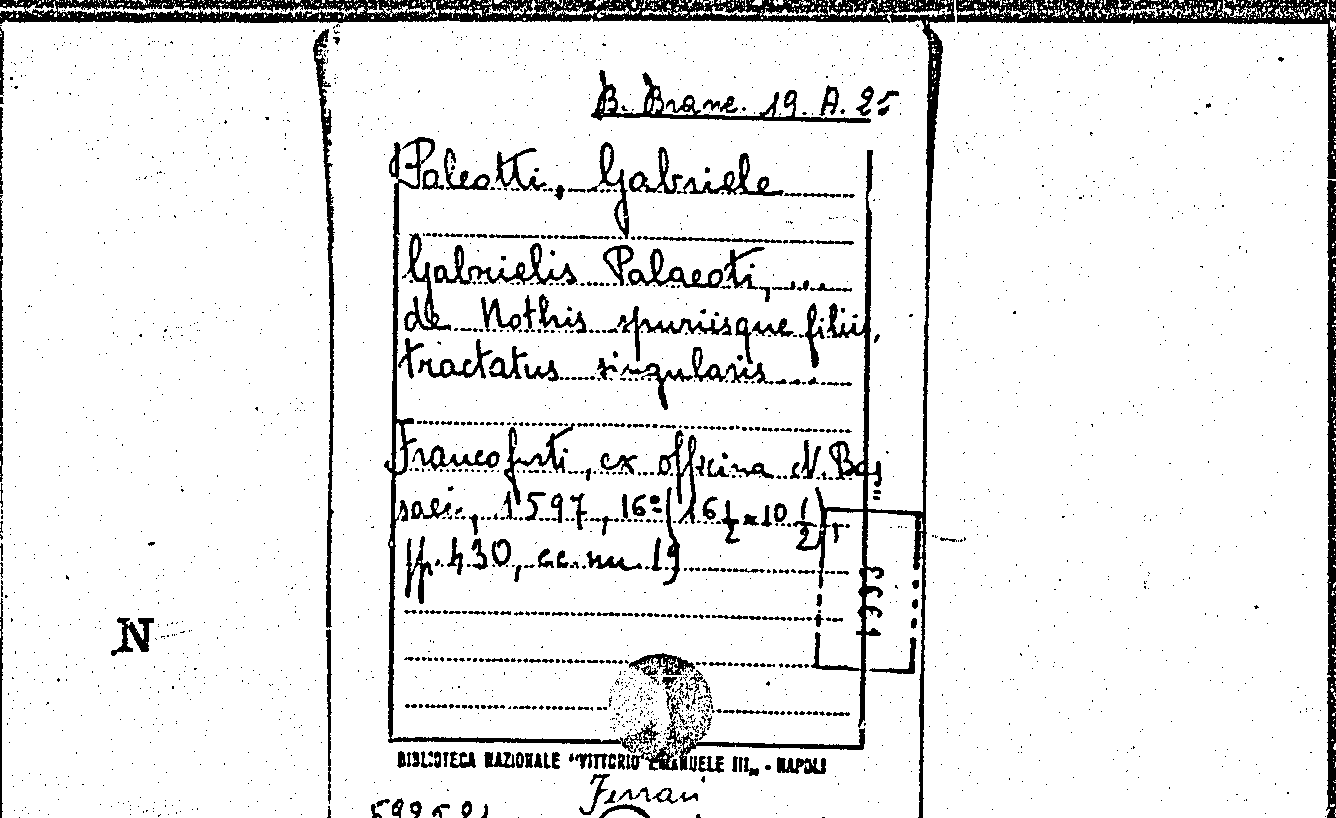 B. Branc. 19. A. 25
Paleotti, Gabriele
Gabrielis Palaeoti, ...
de Nothis spuriisque filiis,
tractatus singularis ...
Francofurti, ex officina N. Bas=
saei, 1597, 16º (16 1/2 x 10 1/2)
pp. 430, cc. nn. 19
N
BIBLIOTECA NAZIONALE "VITTORIO EMANUELE III„ - NAPOLI
Ferrari